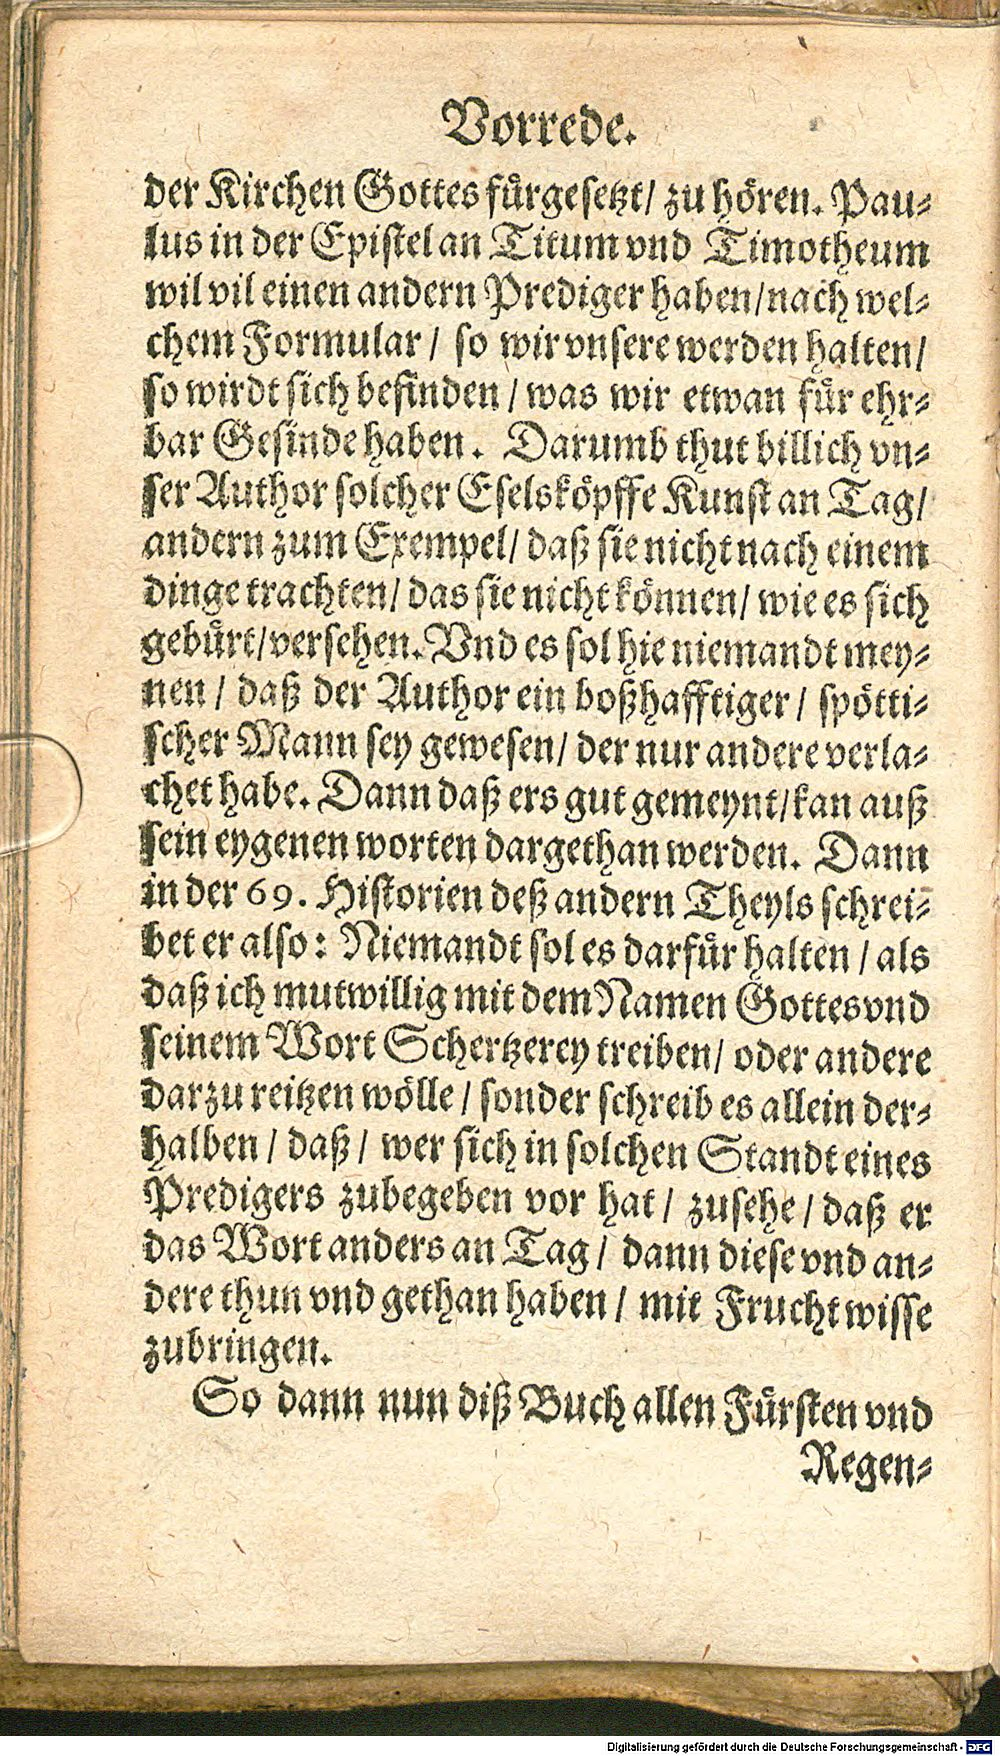 Vorrede.
der Kirchen Gottes fürgesetzt/ zu hören. Pau⸗
lus in der Epistel an Titum vnd Timotheum
wil vil einen andern Prediger haben/nach wel⸗
chem Formular / so wir vnsere werden halten/
so wirdt sich befinden / was wir etwan für ehr⸗
bar Gesinde haben. Darumb thut billich vn⸗
ser Author solcher Eselsköpffe Kunst an Tag/
andern zum Exempel/ daß sie nicht nach einem
dinge trachten/ das sie nicht können/ wie es sich
gebürt/versehen. Vnd es sol hie niemandt mey⸗
nen / daß der Author ein boßhafftiger / spötti⸗
scher Mann sey gewesen/ der nur andere verla⸗
chet habe. Dann daß ers gut gemeynt/kan auß
sein eygenen worten dargethan werden. Dann
in der 69. Historien deß andern Theyls schrei⸗
bet er also: Niemandt sol es darfür halten / als
daß ich mutwillig mit dem Namen Gottes vnd
seinem Wort Schertzerey treiben/ oder andere
darzu reitzen wölle / sonder schreib es allein der⸗
halben / daß / wer sich in solchen Standt eines
Predigers zubegeben vor hat / zusehe / daß er
das Wort anders an Tag / dann diese vnd an⸗
dere thun vnd gethan haben / mit Frucht wisse
zubringen.
So dann nun diß Buch allen Fürsten vnd
Regen⸗
Digitalisierung gefördert durch die Deutsche Forschungsgemeinschaft - DFG